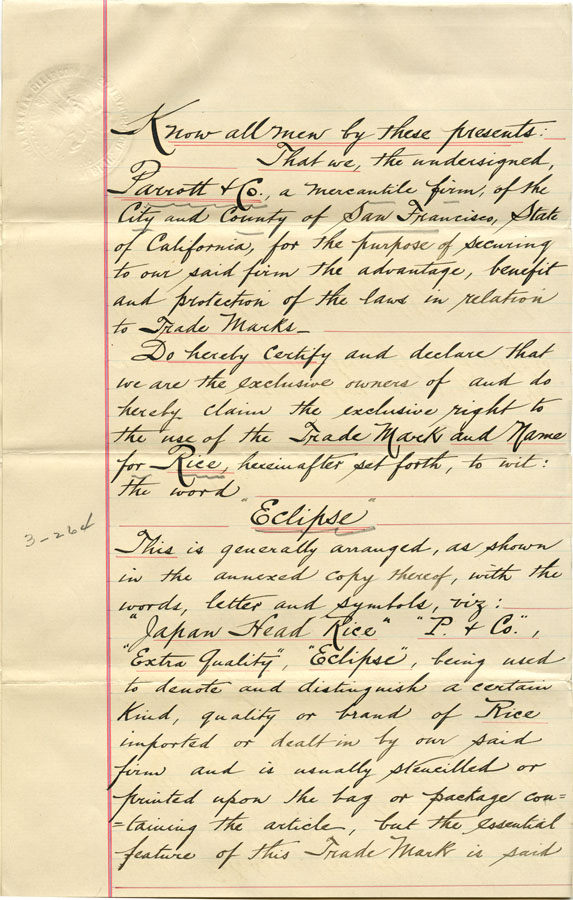 Know all men by these presents:
That we, the undersigned,
Parrott & Co., a mercantile firm, of the
City and County of San Francisco, State
of California, for the purpose of securing
to our said firm the advantage, benefit
and protection of the laws in relation
to Trade Marks—
Do hereby Certify and declare that
we are the exclusive owners of and do
hereby claim the exclusive right to
the use of the Trade Mark and Name
for Rice, hereinafter set forth, to wit:
the word
"Eclipse"
3-264
This is generally arranged, as shown
in the annexed copy thereof, with the
words, letter and symbols, viz:
"Japan Head Rice" "P. & Co.",
"Extra Quality", "Eclipse", being used
to denote and distinguish a certain
Kind, quality or brand of Rice
imported or dealt in by our said
firm and is usually stencilled or
printed upon the bag or package con=
=taining the article, but the essential
feature of this Trade Mark is said